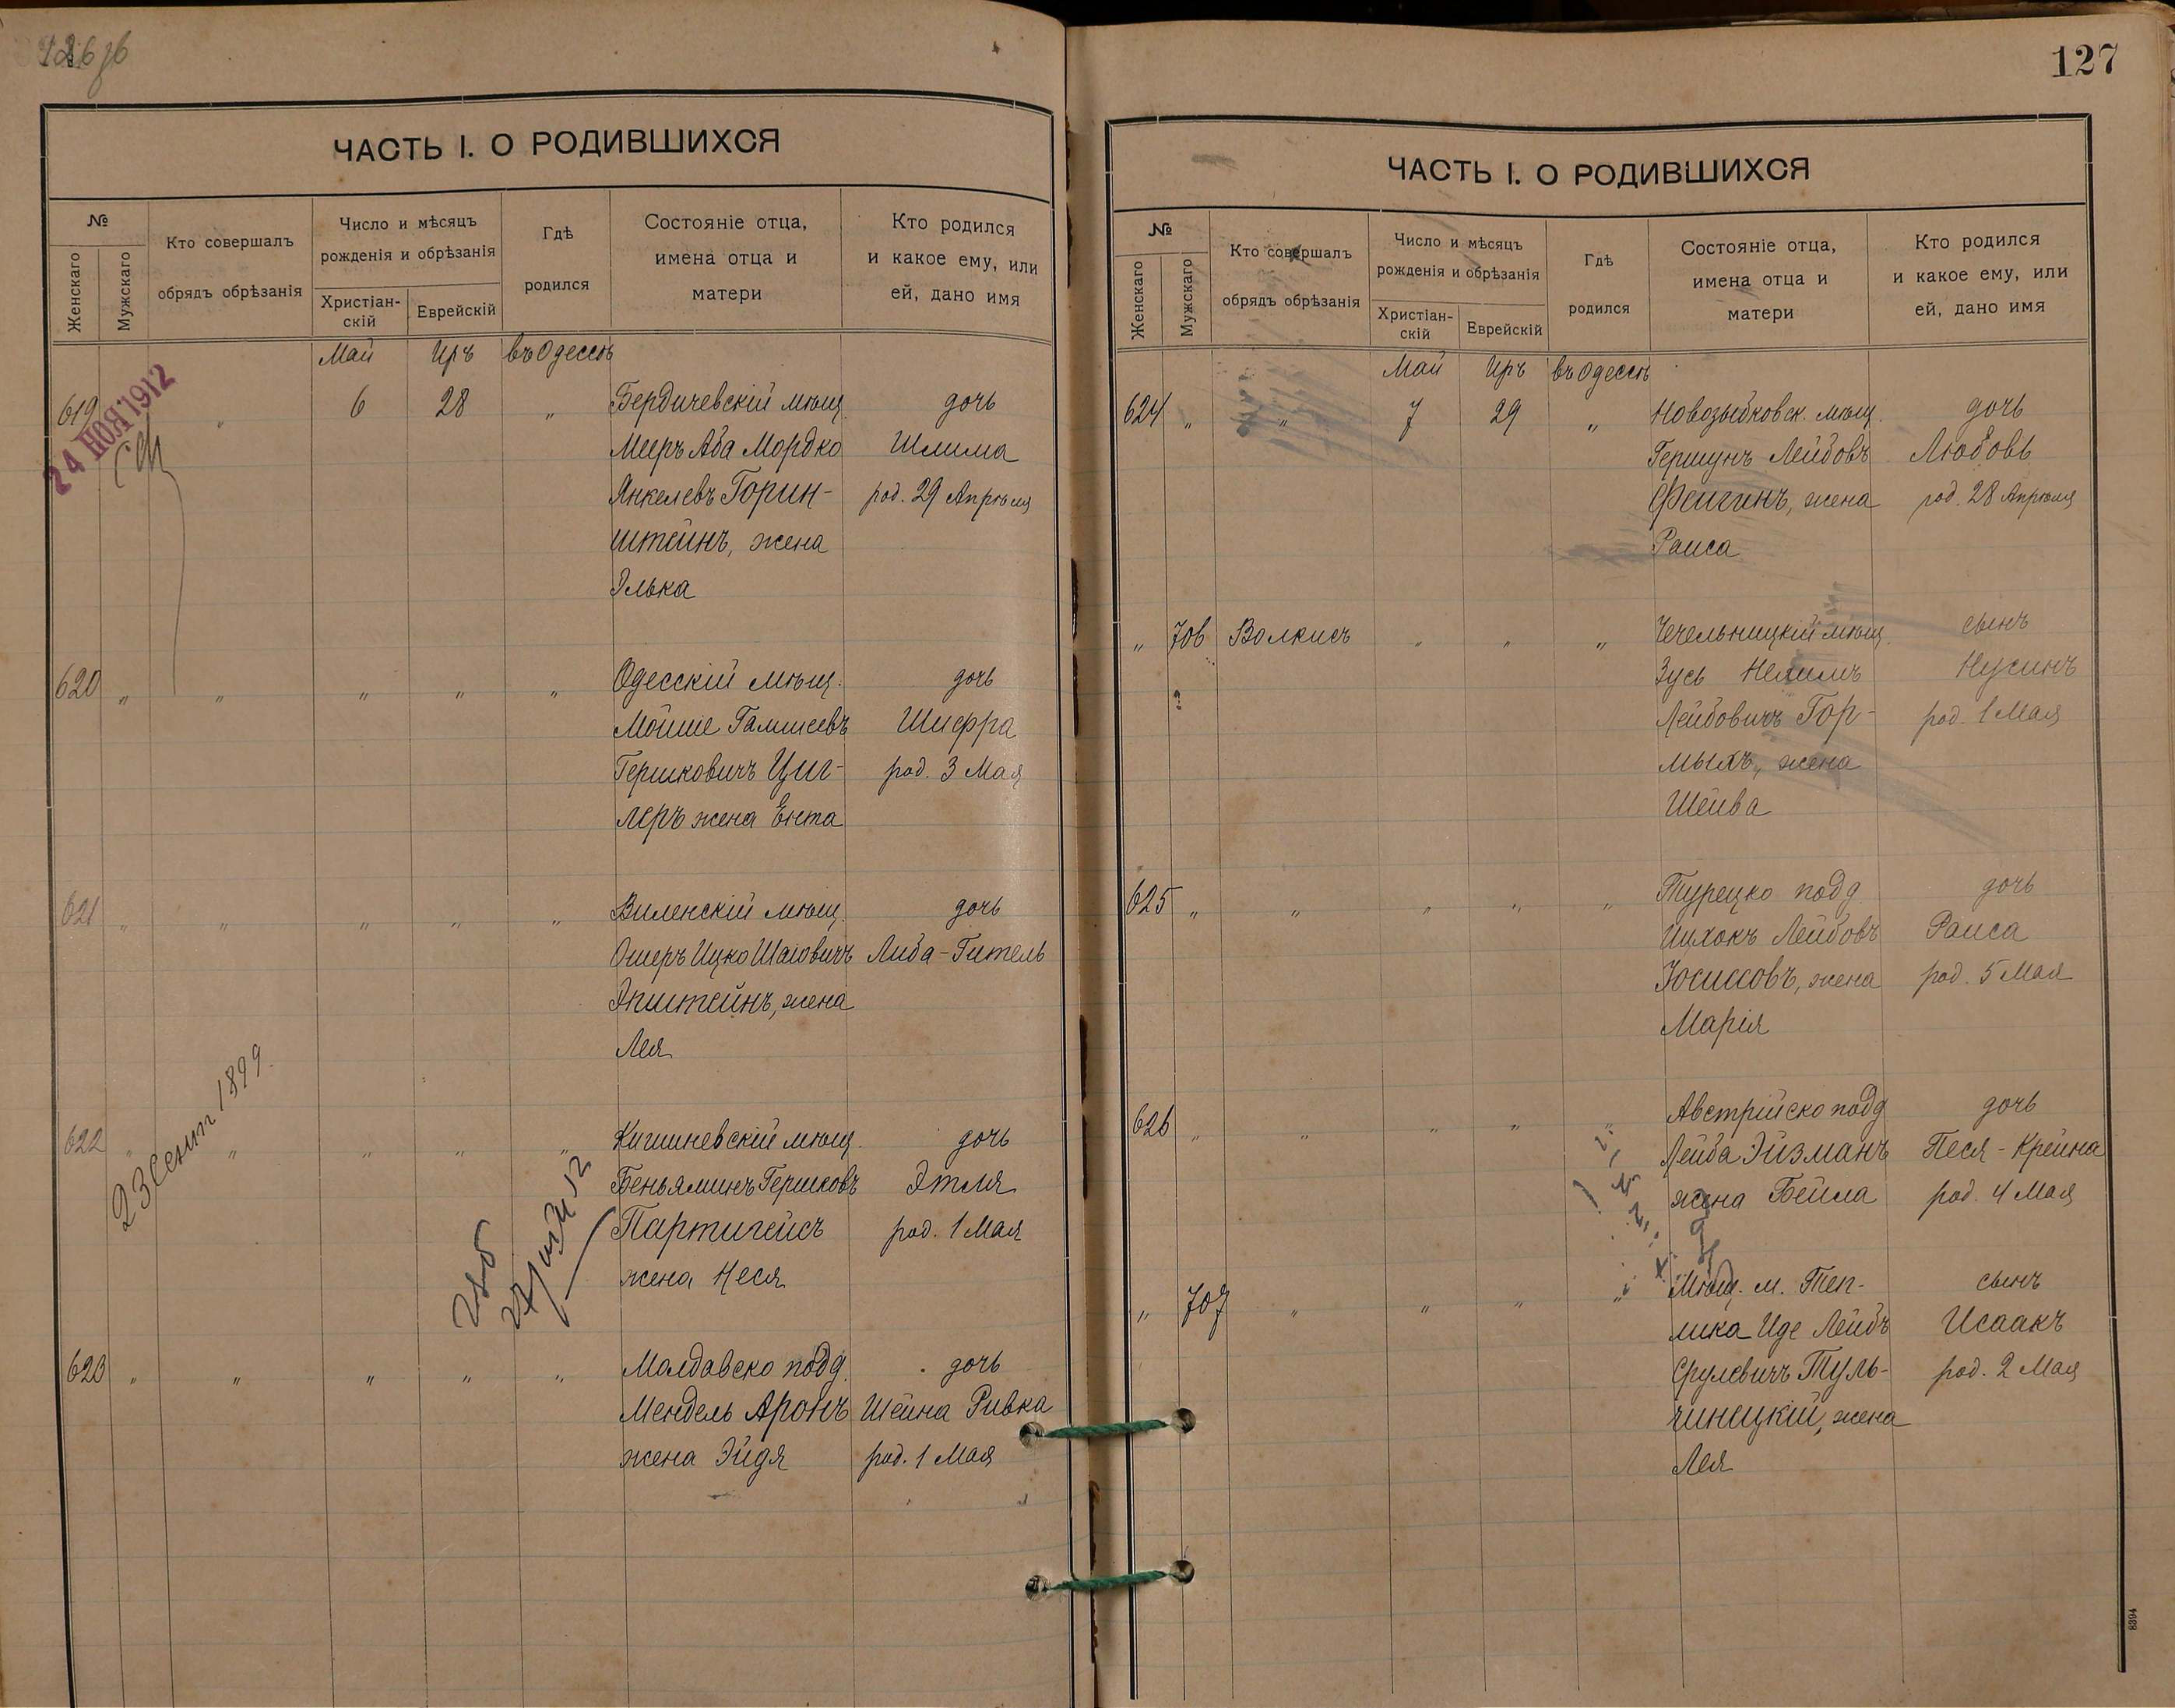 ЧАСТЬ I. О РОДИВШИХСЯ
№
Женскаго
Мужскаго
Кто совершалъ
обрядъ обрѣзанія
Число и мѣсяцъ
рожденія и обрѣзанія
Христіан-
скій
Еврейскій
Гдѣ
родился
Состояніе отца,
имена отца и
матери
Кто родился
и какое ему, или
ей, дано имя
Май Иръ въ Одессѣ
24 НОЯ 1912
619 " 6 28 " Бердичевскій мѣщ. дочь
Мееръ Аба Мордко Шлима
Янкелевъ Горин- род. 29 Апрѣля
штейнъ, жена
Элька
620 " " " " " Одесскій мѣщ. дочь
Мойше Шифра
Гершковичъ Циг- род. 3 Мая
леръ жена Ента
621 " " " " " Виленскій мѣщ. дочь
Ошеръ Ицко Шаіовичъ Либа-Гитель
Эпштейнъ, жена
Лея
23 Сент 1899.
622 " " " " " Кишиневскій мѣщ. дочь
Беньяминъ Гершковъ Этля
Партигейсъ род. 1 Мая
жена Неся
623 " " " " " Молдавско подд. дочь
Мендель Аронъ Шейна Ривка
жена Эйдя род. 1 Мая
127
ЧАСТЬ I. О РОДИВШИХСЯ
№
Женскаго
Мужскаго
Кто совершалъ
обрядъ обрѣзанія
Число и мѣсяцъ
рожденія и обрѣзанія
Христіан-
скій
Еврейскій
Гдѣ
родился
Состояніе отца,
имена отца и
матери
Кто родился
и какое ему, или
ей, дано имя
Май Иръ въ Одессѣ
624 " " 7 29 " Новозыбковск. мѣщ. дочь
Гершунъ Лейбовъ Любовь
Фейгинъ, жена род. 28 Апрѣля
Раиса
" 706 Волкисъ " " " Чечельницкій мѣщ. сынъ
Зусь Нусинъ
Лейбовичъ Гор- род. 1 Мая
мыхъ, жена
Шейва
625 " " " " " Турецко подд дочь
Ицхокъ Лейбовъ Раиса
Юсимовъ, жена род. 5 Мая
Марія
626 " " " " " Австрійско подд дочь
Лейба Эйзманъ Песя-Крейна
жена Бейла род. 4 Мая
" 707 " " " " Мѣщ. м. Теп- сынъ
лика Иде Лейбъ Исаакъ
Срулевичъ Туль- род. 2 Мая
чинецкій, жена
Лея
8394